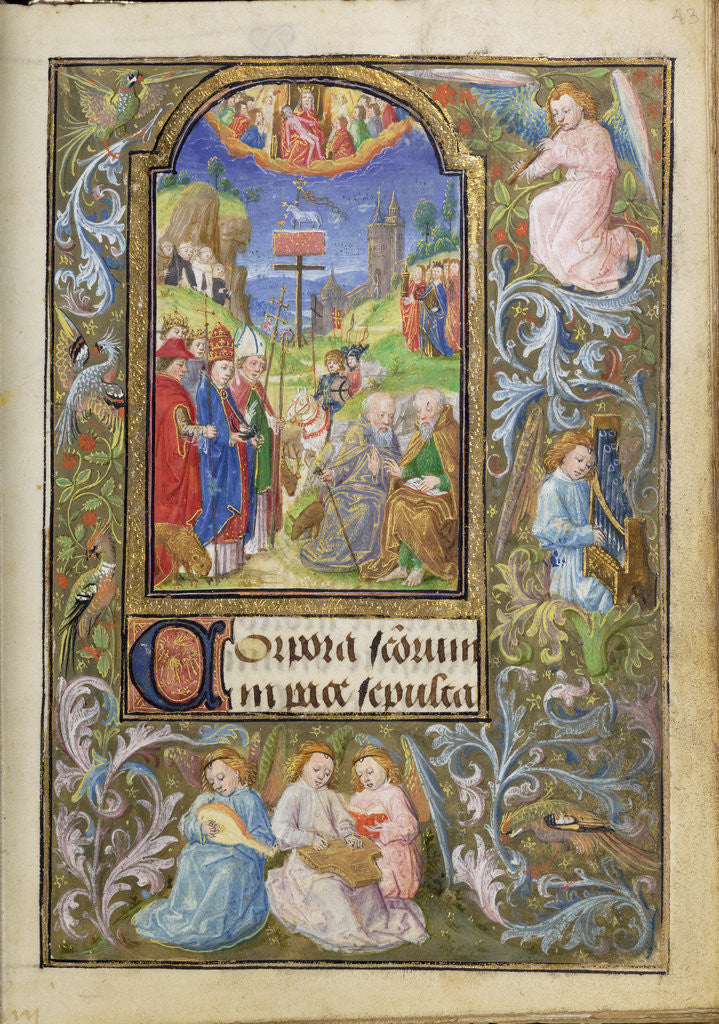 43
Corpora scōrum
in pace sepulta